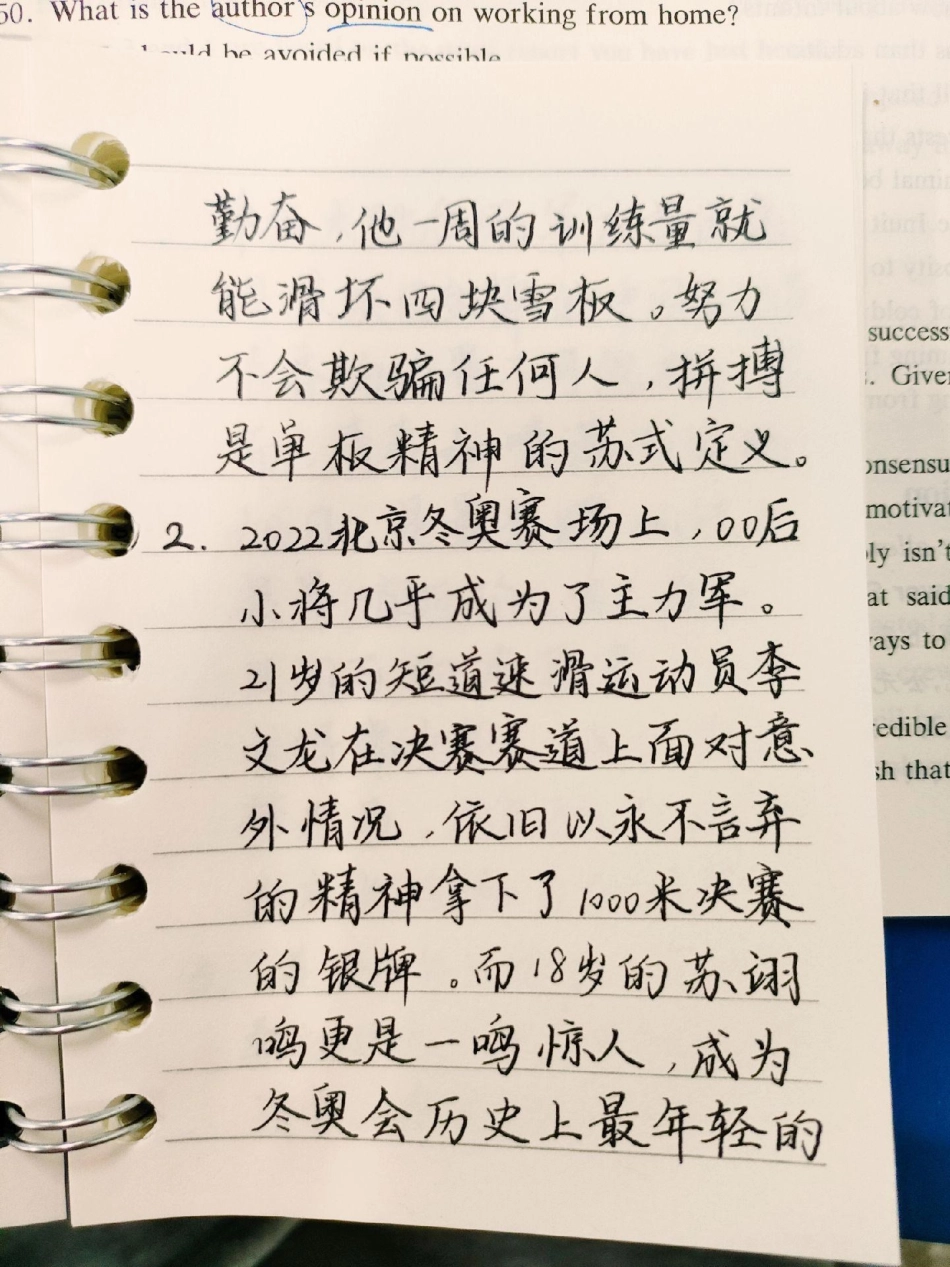 50. What is the author's opinion on working from home?
be avoided if possible
勤奋，他一周的训练量就
能滑坏四块雪板。努力
不会欺骗任何人，拼搏
是单板精神的苏式定义。
2. 2022北京冬奥赛场上，00后
小将几乎成为了主力军。
21岁的短道速滑运动员李
文龙在决赛赛道上面对意
外情况，依旧以永不言弃
的精神拿下了1000米决赛
的银牌。而18岁的苏翊
鸣更是一鸣惊人，成为
冬奥会历史上最年轻的
success
. Give
onsensu
motivat
ly isn't
at said
ays to
edible
sh that